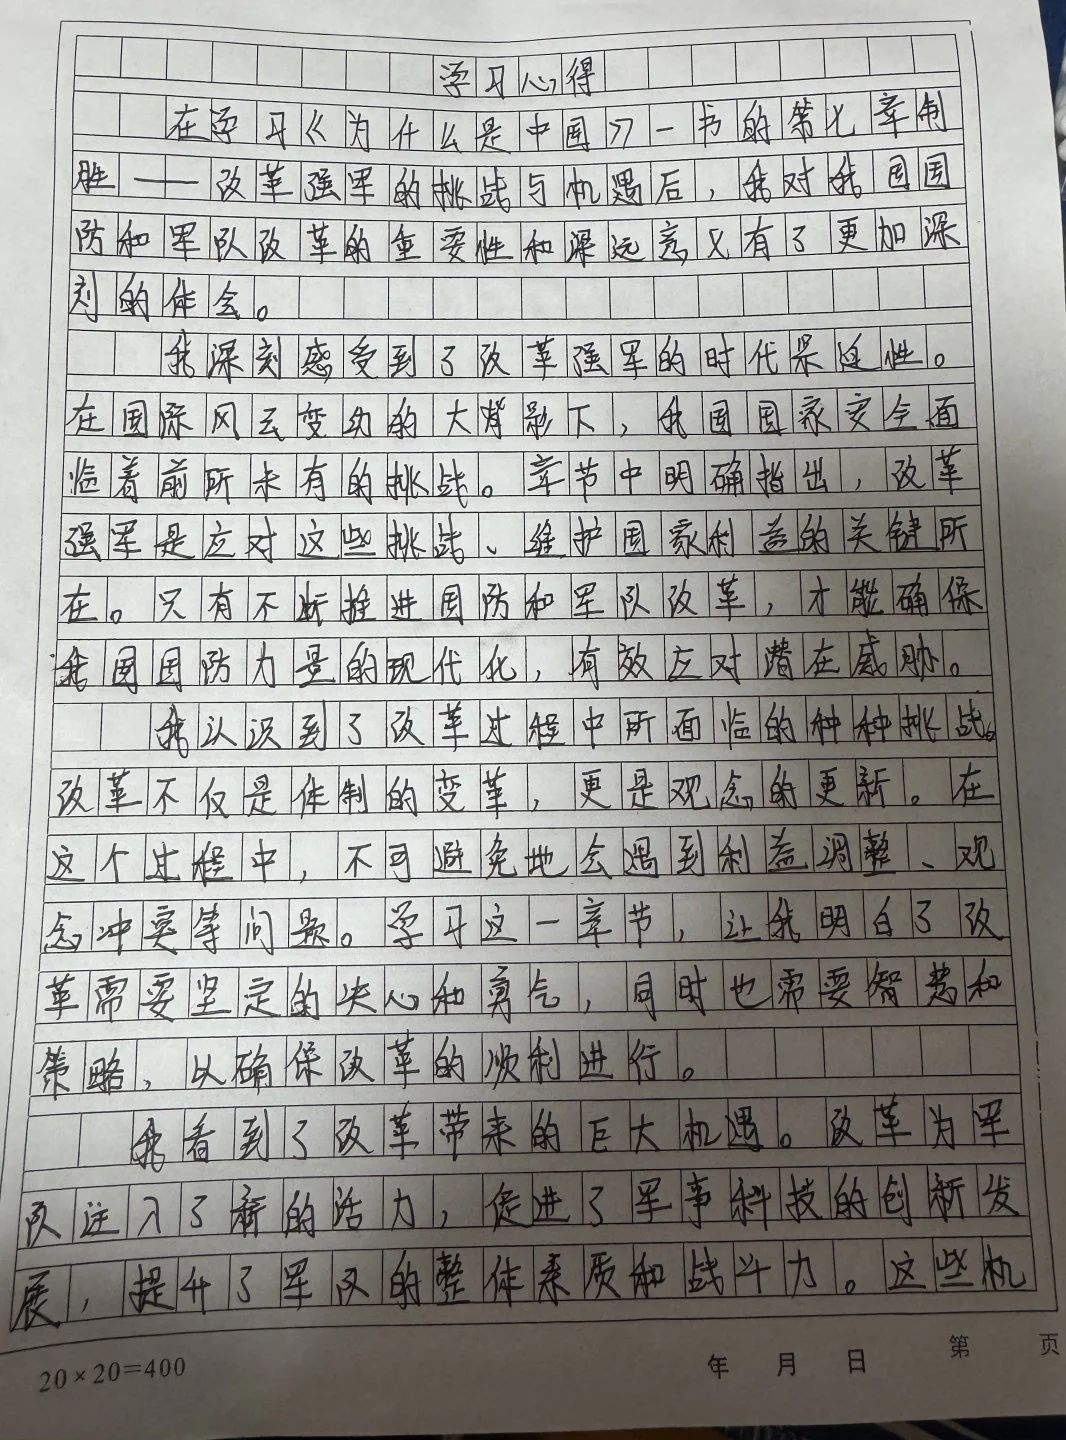 学习心得
在学习《为什么是中国》一书的第七章制
胜——改革强军的挑战与机遇后，我对我国国
防和军队改革的重要性和深远意义有了更加深
刻的体会。
我深刻感受到了改革强军的时代紧迫性。
在国际风云变幻的大背景下，我国国家安全面
临着前所未有的挑战。章节中明确指出，改革
强军是应对这些挑战、维护国家利益的关键所
在。只有不断推进国防和军队改革，才能确保
我国国防力量的现代化，有效应对潜在威胁。
我认识到了改革过程中所面临的种种挑战。
改革不仅是体制的变革，更是观念的更新。在
这个过程中，不可避免地会遇到利益调整、观
念冲突等问题。学习这一章节，让我明白了改
革需要坚定的决心和勇气，同时也需要智慧和
策略，以确保改革的顺利进行。
我看到了改革带来的巨大机遇。改革为军
队注入了新的活力，促进了军事科技的创新发
展，提升了军队的整体素质和战斗力。这些机
20×20=400
年 月 日 第 页